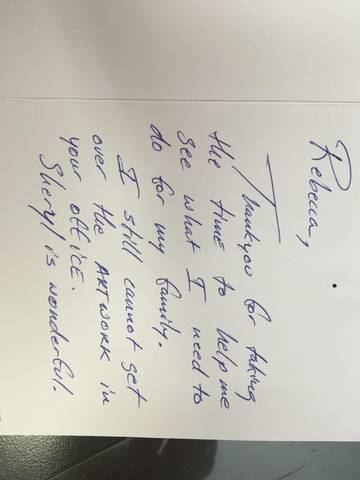 Rebecca,
Thankyou for taking
the time to help me
see what I need to
do for my family.
I still cannot get
over the ARTWORK in
your office.
Sheryl is wonderful.